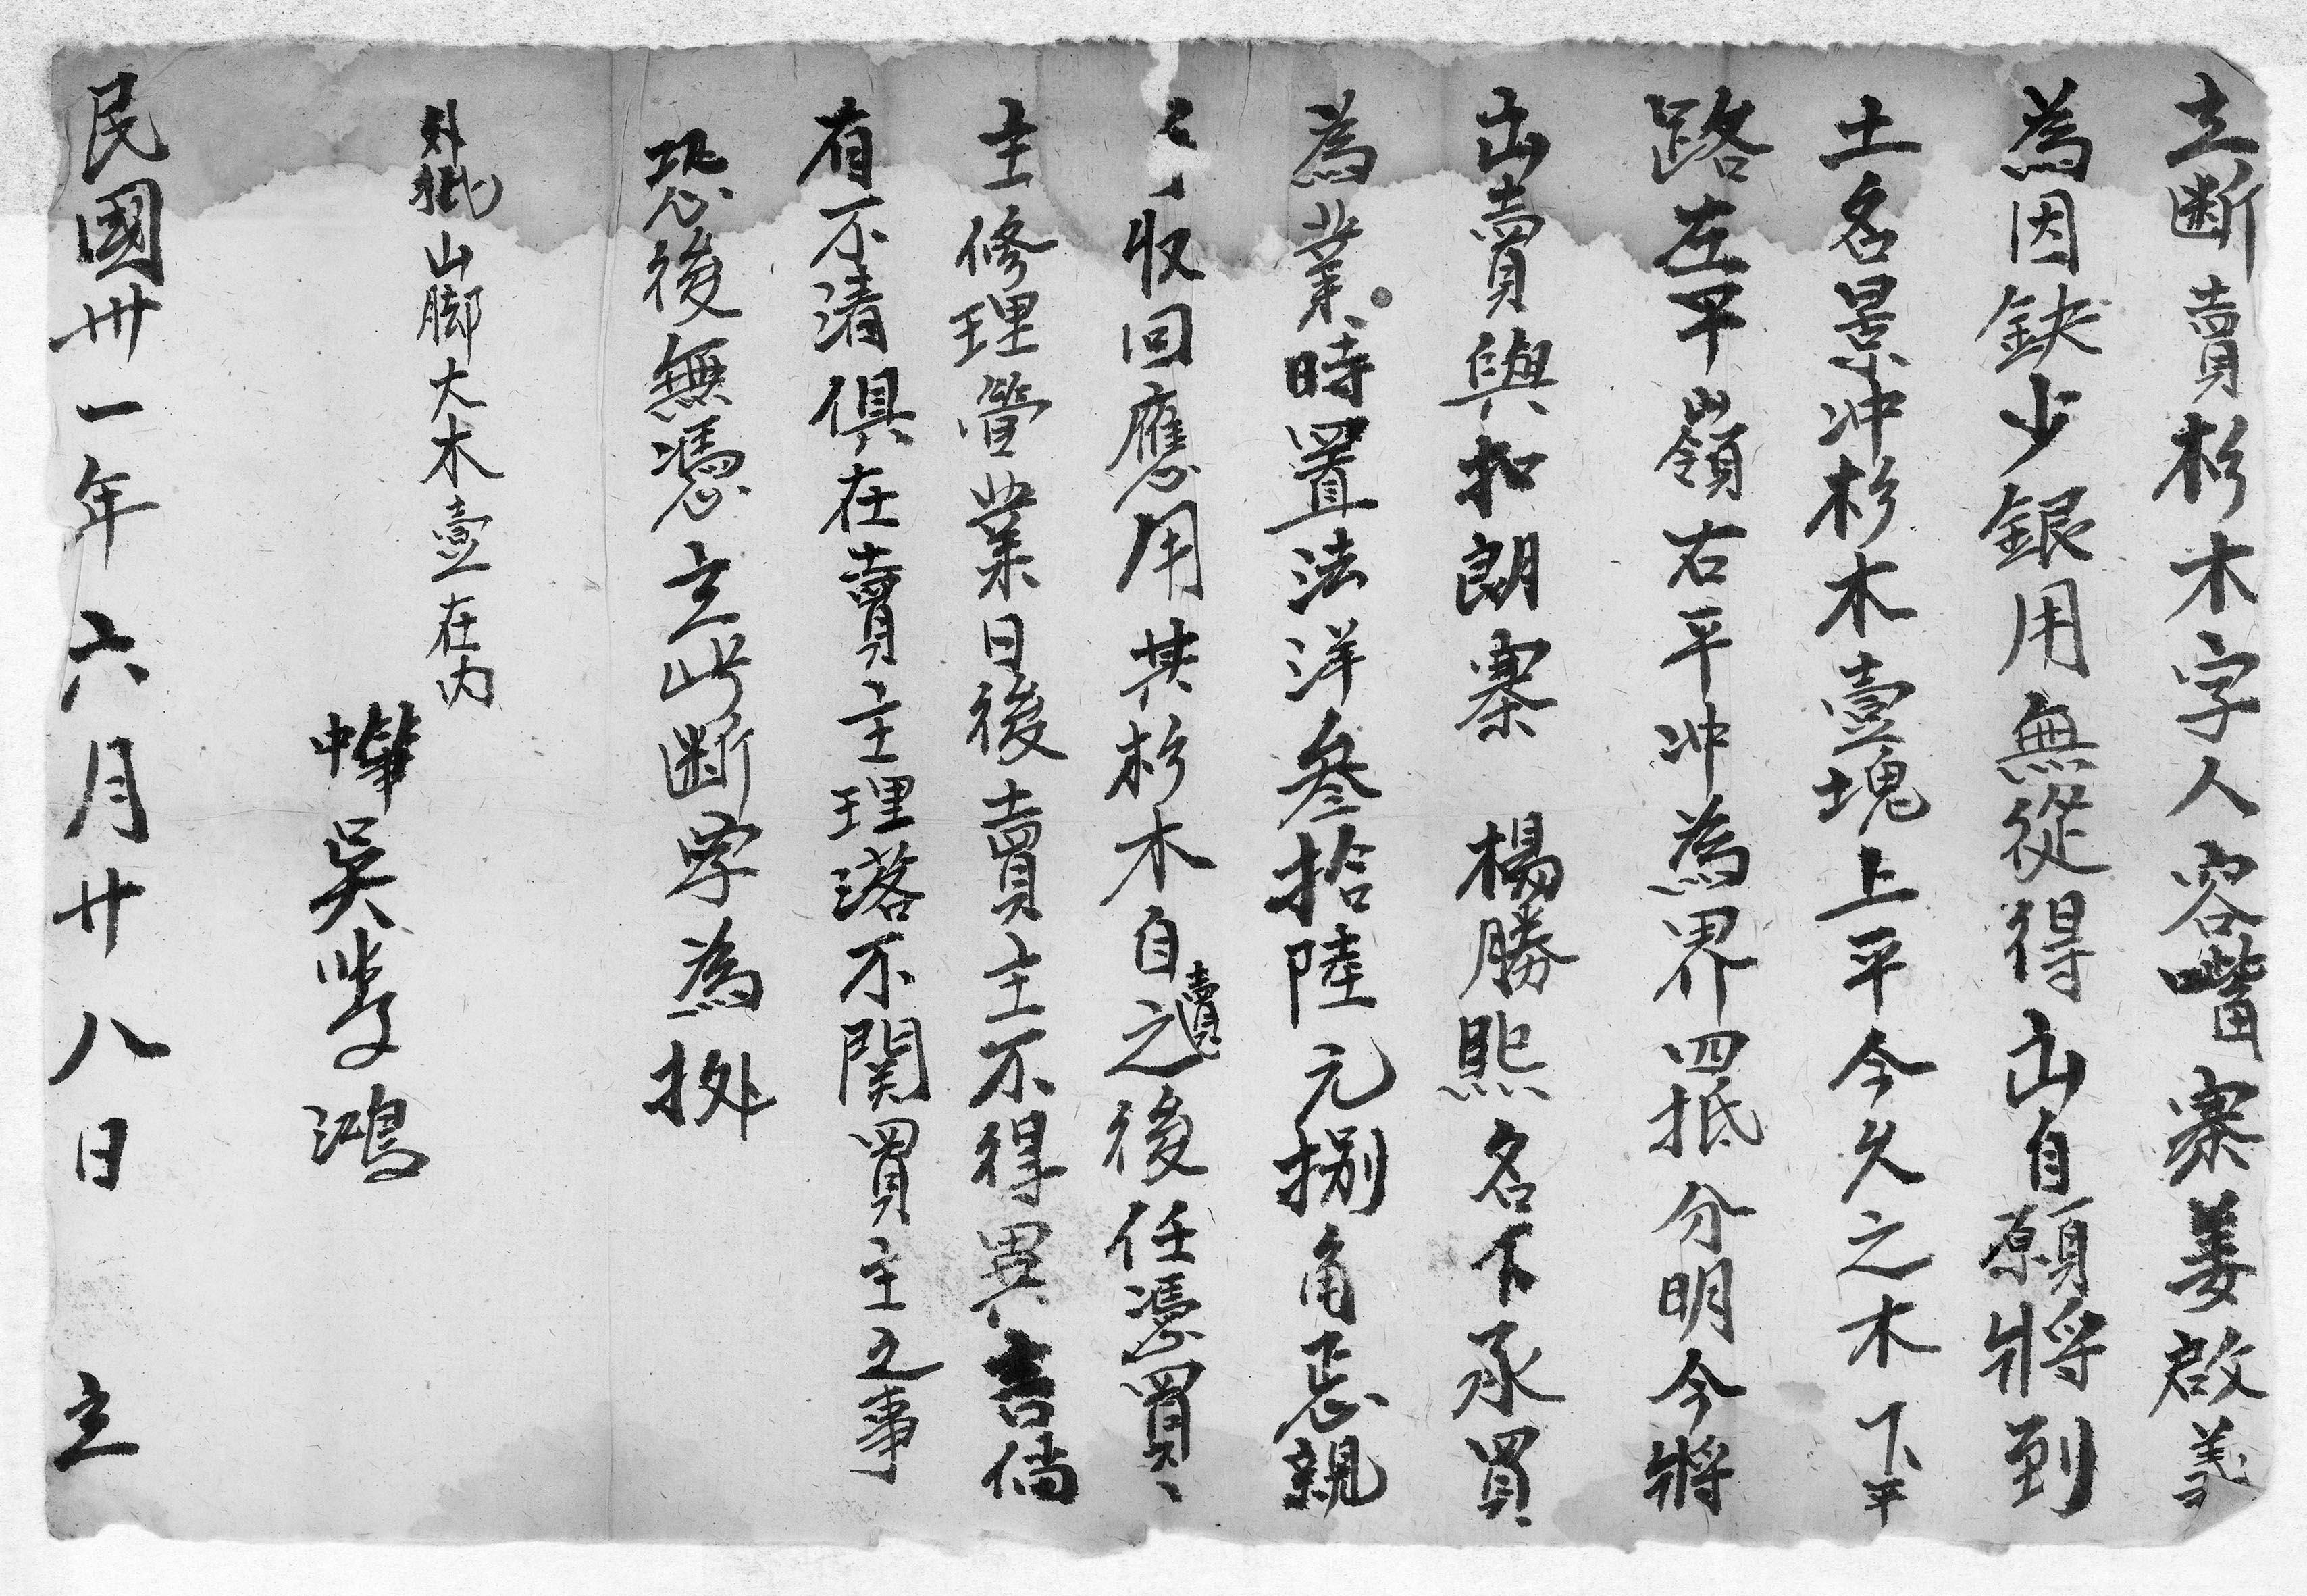 立断賣杉木字人容嘴寨姜啟義
為因缺少銀用無從得出自願將到
土名景冲杉木壹塊上平今久之木下平
路左平嶺右平冲為界四抵分明今將
出賣與扣朗寨楊勝熙名下承買
為業時置法洋叁拾陸元捌角正親
收回應用其杉木自賣之後任憑買
主修理管業日後賣主不得異言倘
有不清俱在賣主理落不関買主之事
恐後無憑立此断字為拠
外批山脚大木壹在内
吳 鴻
民國卅一年六月廿八日 立